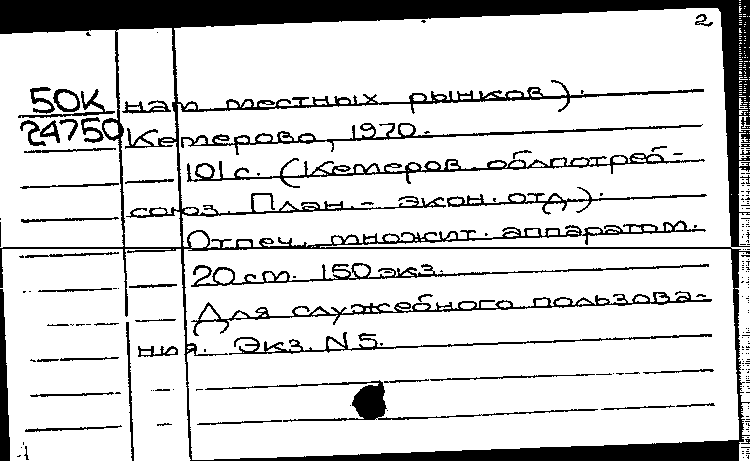 2
50К нам местных рынков).
24750 Кемерово, 1970.
101 с. (Кемеров. облпотреб-
союз. План.- экон. отд.).
Отпеч. множит. аппаратом.
20 см. 150 экз.
Для служебного пользова-
ния. Экз. N 5.